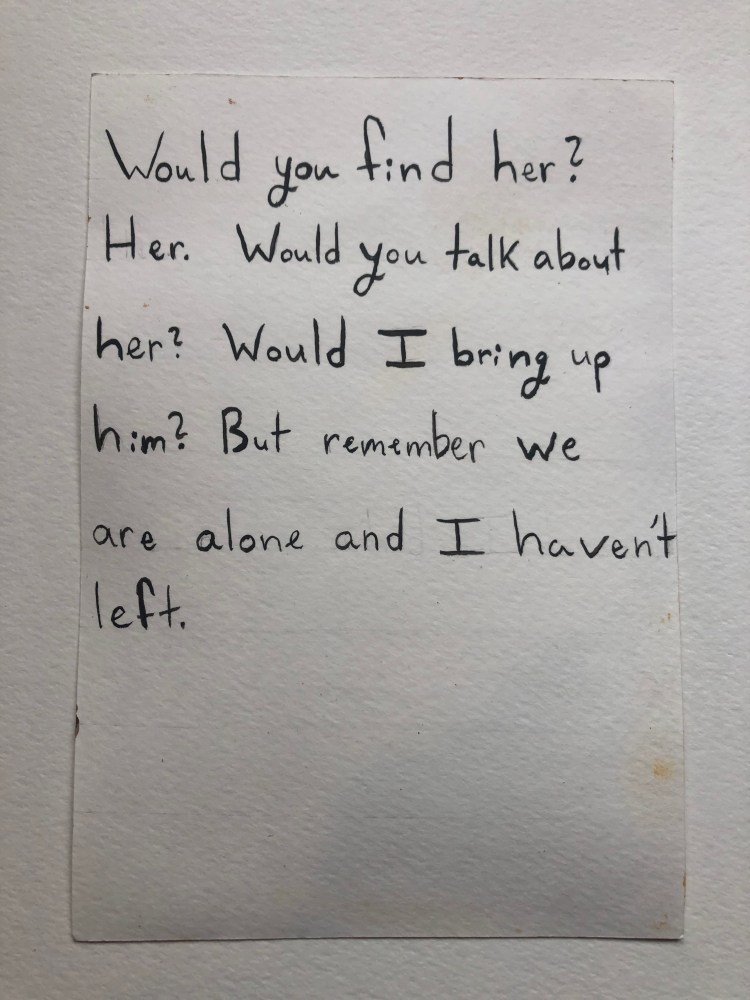 Would you find her?
Her. Would you talk about
her? Would I bring up
him? But remember we
are alone and I haven't
left.